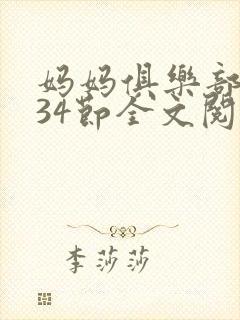 妈妈俱樂部
34節全文閱
李莎莎